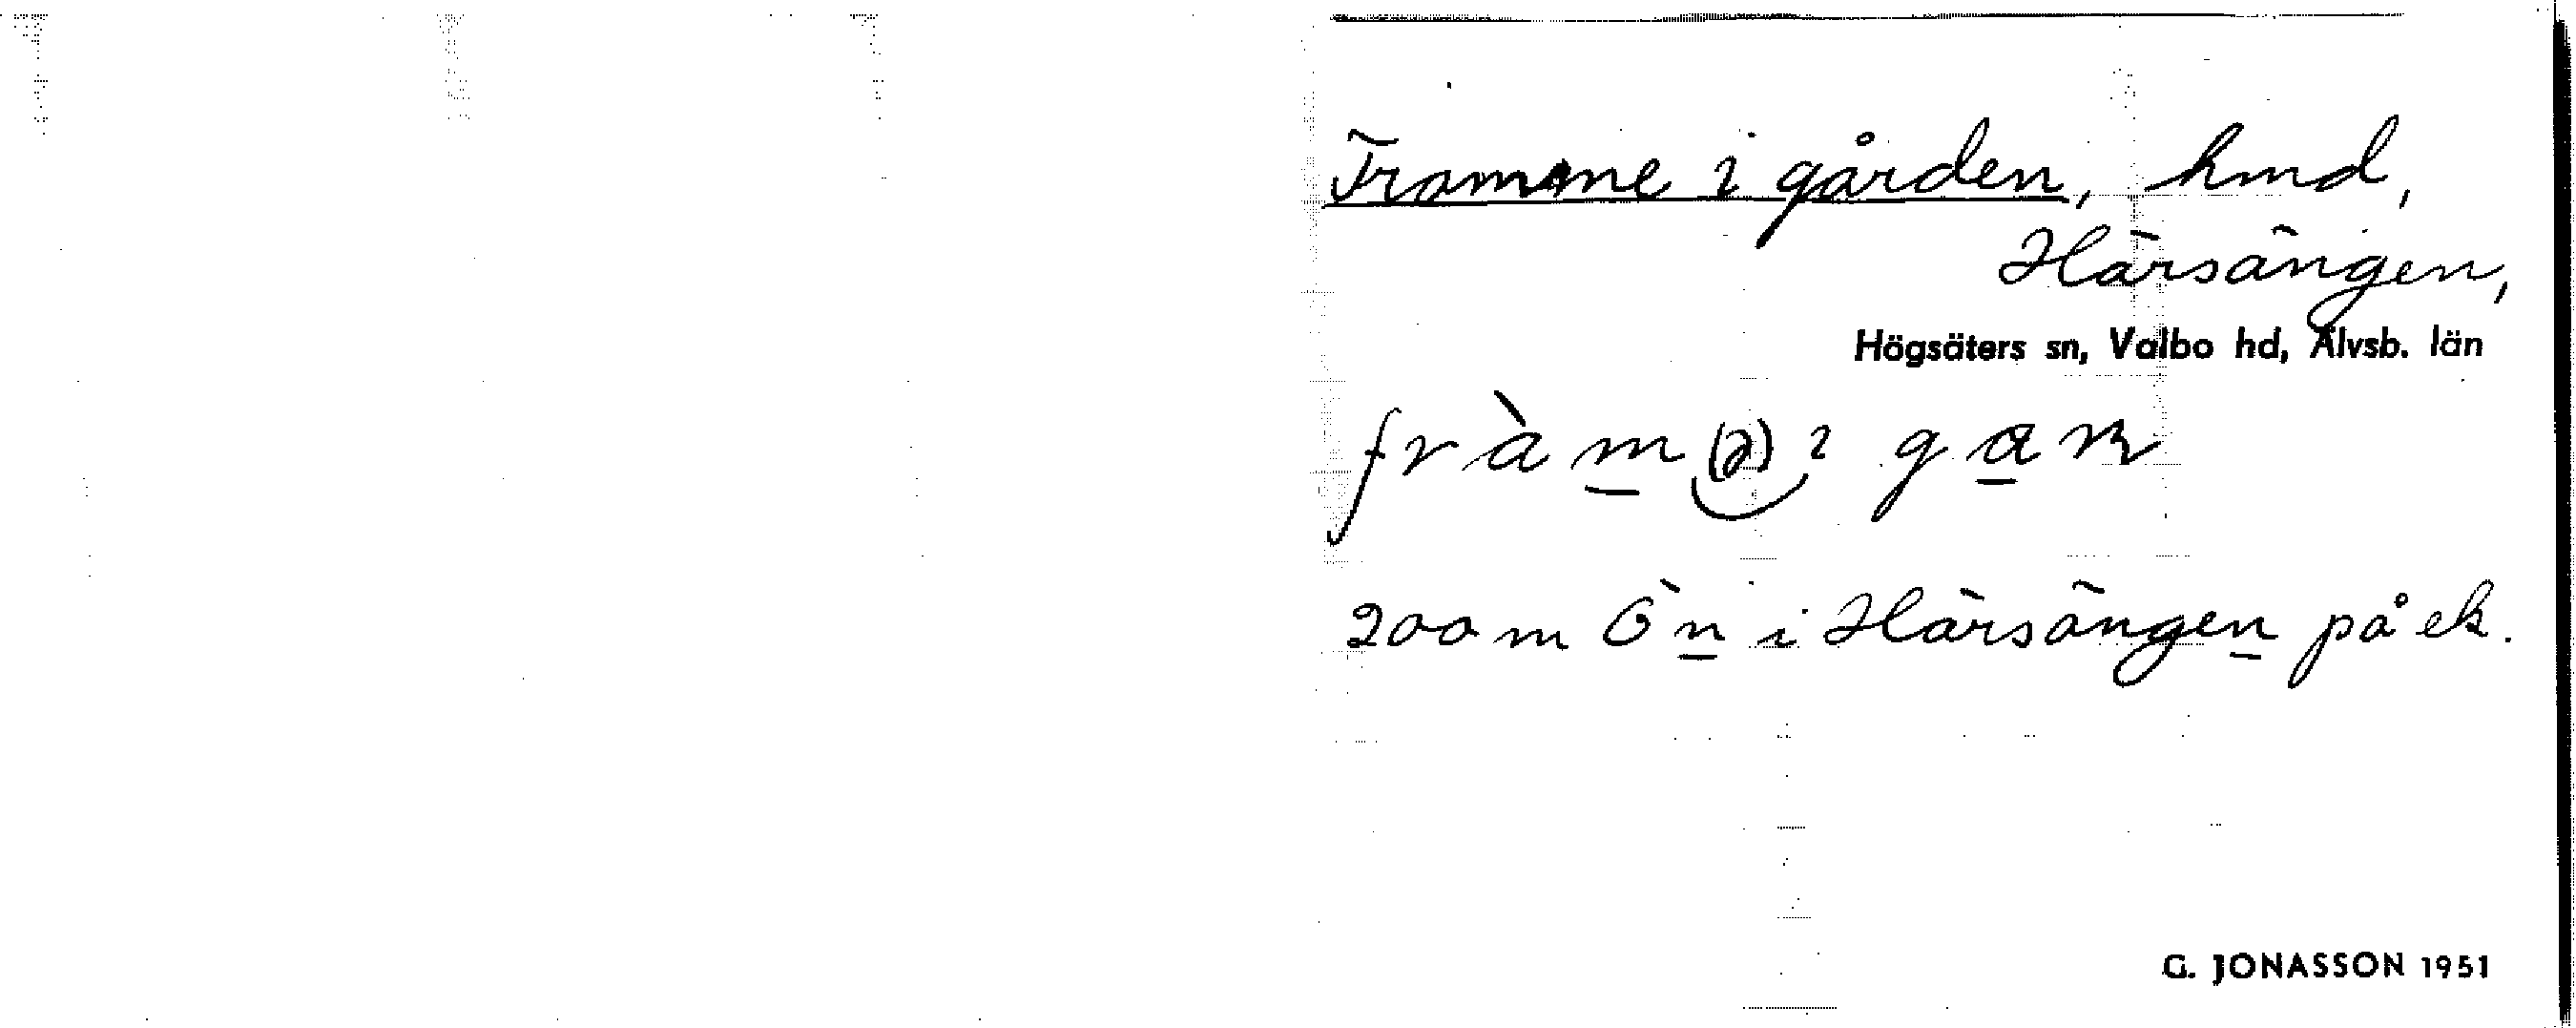 Framme i gården, hmd,
Härsängen,
Högsäters sn, Valbo hd, Älvsb. län
fràm(ə) ı gaɳ
200 m Ön i Härsängen på ek.
G. JONASSON 1951